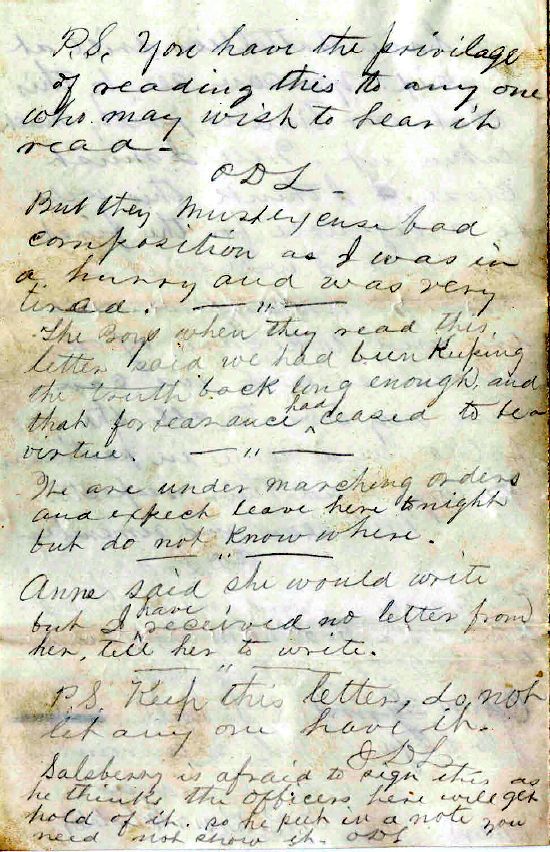 P.S. You have the privilage
of reading this to any one
who may wish to hear it
read -
ODL -
But they must excuse bad
composition as I was in
a hurry and was very
tired. — " —
The Boys when they read this
letter said we had been Keeping
the truth back long enough, and
that forbearance had ceased to be a
virtue. — " —
We are under marching orders
and expect leave here tonight
but do not Know where.
— " —
Anne said she would write
but I have received no letter from
her, tell her to write.
— " —
P.S. Keep this letter, do not
let any one have it.
ODL
Salsberry is afraid to sign this as
he thinks the officers here will get
hold of it. so he put in a note you
need not show it. ODL